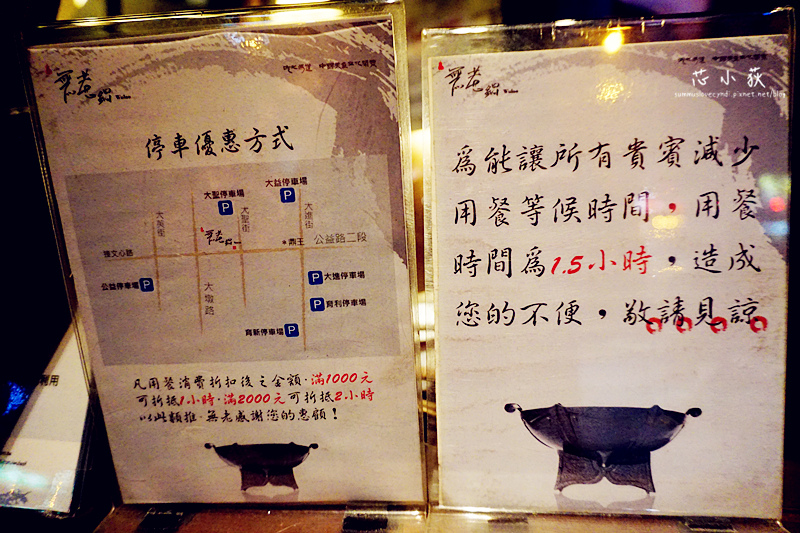 無老鍋 Wulao
停車優惠方式
大聖停車場
大益停車場
P
P
大英街
大聖街
大進街
無老鍋
鼎王
公益路二段
公益停車場
P
大墩路
P
大進停車場
P
育利停車場
育新停車場
P
凡用餐消費折扣後之金額,滿1000元
可折抵1小時,滿2000元可折抵2小時
以此類推,無老感謝您的惠顧!
無老鍋 Wulao
芯小荻
為能讓所有貴賓減少
用餐等候時間,用餐
時間為1.5小時,造成
您的不便,敬請見諒。
利用